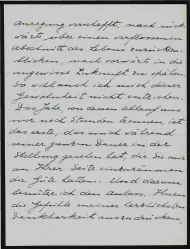 Anregung verschafft, nach rück-
wärts über einen verflossenen
Abschnitt des Lebens zurückzu-
blicken, nach vorwärts in die
ungewisse Zukunft zu spähen.
So will auch ich mich dieser
Gewohnheit nicht entziehen.
Das Jahr, von dessen Ablauf uns
nur noch Stunden trennen, ist
das erste, das mich während
seiner ganzen Dauer in der
Stellung gesehen hat, die Sie mir
an Ihrer Seite einzuräumen
die Güte hatten. Und darum
benütze ich den Anlass, Ihnen
die Gefühle meiner herzlichsten
Dankbarkeit auszudrücken,